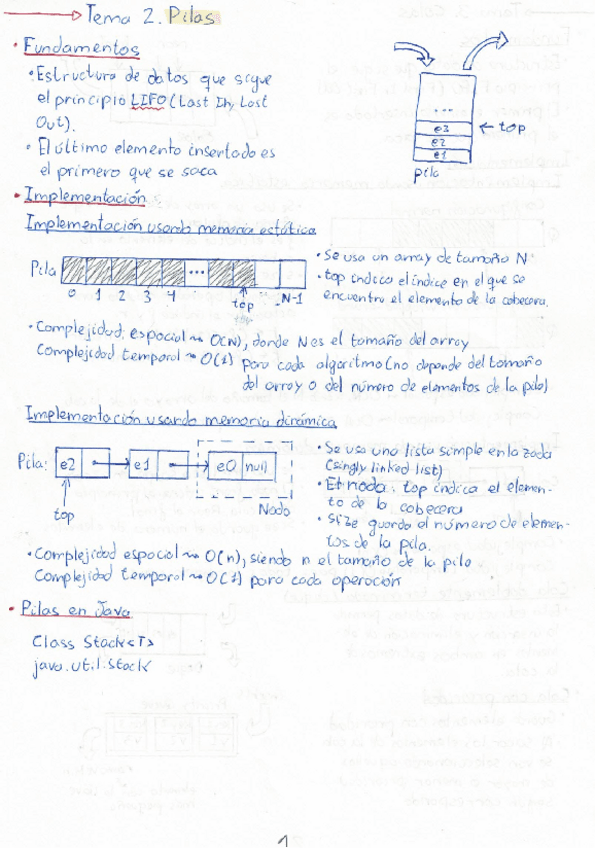 Tema 2. Pilas
• Fundamentos
• Estructura de datos que sigue
el principio LIFO (Last In, Last
Out).
• El último elemento insertado es
el primero que se saca
...
e3
e2
e1
← top
pila
• Implementación:
Implementación usando memoria estática
Pila
...
0 1 2 3 4 top N-1
• Se usa un array de tamaño N
• top indica el índice en el que se
encuentra el elemento de la cabecera.
• Complejidad espacial ⇝ O(N), donde N es el tamaño del array
Complejidad temporal ⇝ O(1) para cada algoritmo (no depende del tamaño
del array o del número de elementos de la pila)
Implementación usando memoria dinámica
Pila: e2 e1 e0 null
top
Nodo
• Se usa una lista simple enlazada
(singly linked list)
• El nodo top indica el elemen-
to de la cabecera
• size guarda el número de elemen-
tos de la pila.
• Complejidad espacial ⇝ O(n), siendo n el tamaño de la pila
Complejidad temporal ⇝ O(1) para cada operación
• Pilas en Java
Class Stack<T>
java.util.Stack
1